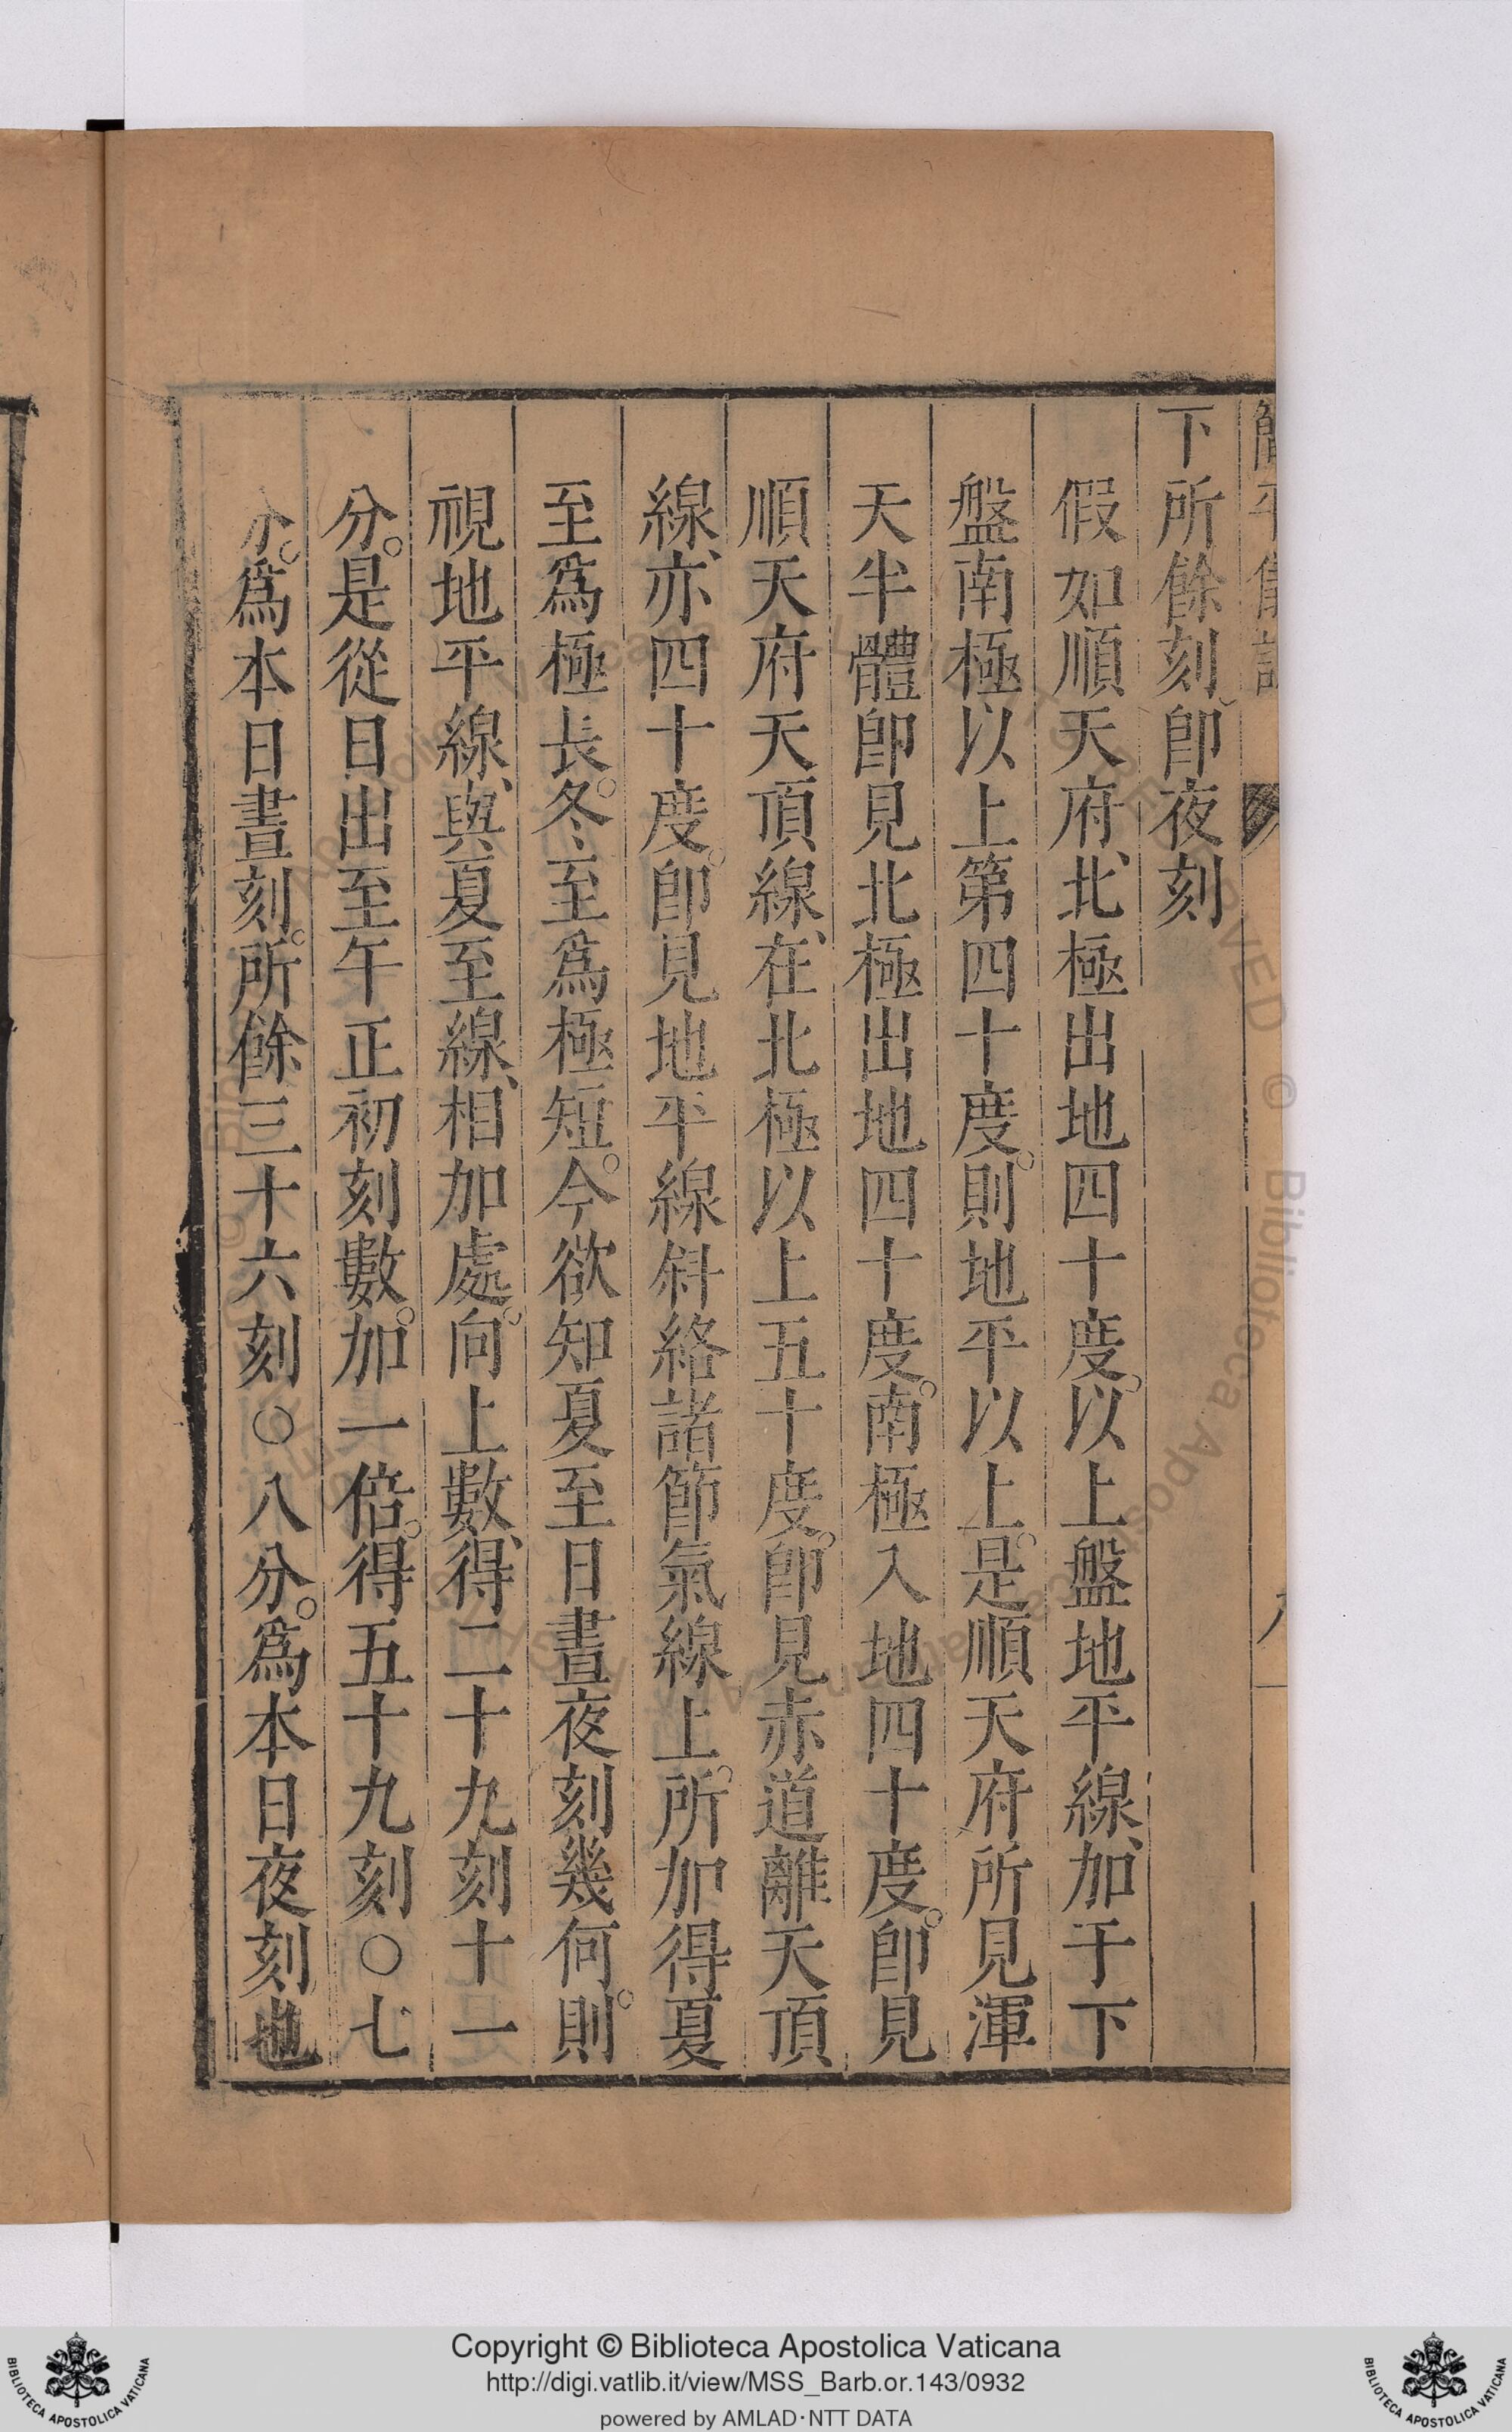 下所餘刻、卽夜刻
假如順天府、北極出地四十度。以上盤地平線、加于下
盤南極以上第四十度。則地平以上。是順天府所見渾
天半體卽見北極出地四十度。南極入地四十度。卽見
順天府天頂線、在北極以上五十度。卽見赤道離天頂
線、亦四十度。卽見地平線斜絡諸節氣線上。所加得夏
至爲極長。冬至爲極短。今欲知夏至日晝夜刻幾何。則
視地平線、與夏至線、相加處。向上數、得二十九刻十一
分。是從日出至午正初刻數。加一倍。得五十九刻〇七
分。爲本日晝刻。所餘三十六刻〇八分。爲本日夜刻也
Copyright © Biblioteca Apostolica Vaticana
http://digi.vatlib.it/view/MSS_Barb.or.143/0932
powered by AMLAD·NTT DATA
BIBLIOTECA APOSTOLICA VATICANA
BIBLIOTECA APOSTOLICA VATICANA